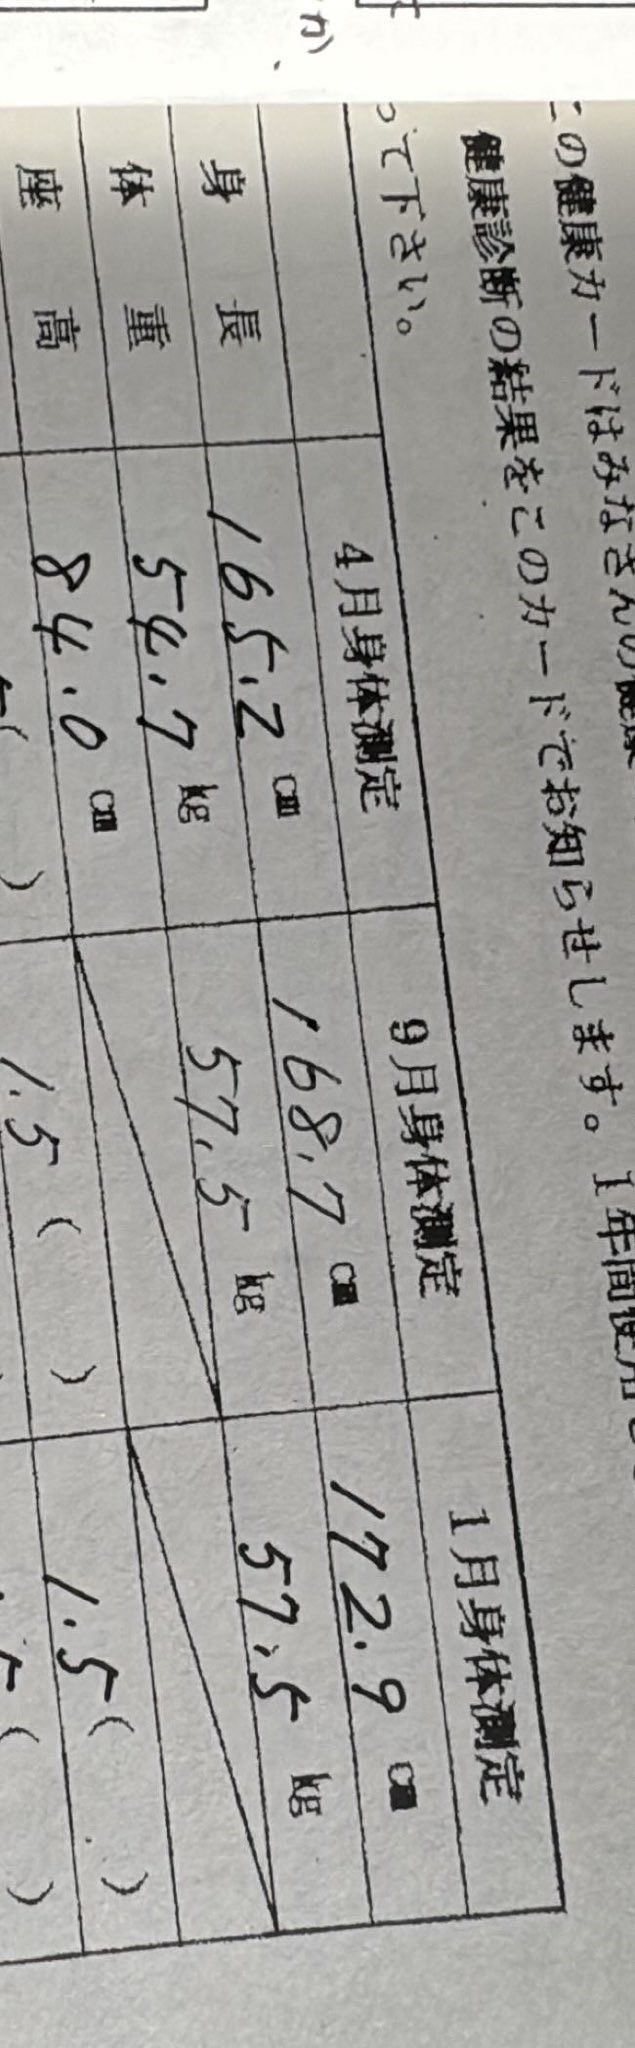 の健康カードはみなさんの健康
健康診断の結果をこのカードでお知らせします。1年間使用
って下さい。
4月身体測定 9月身体測定 1月身体測定
身長 165.2 cm 168.7 cm 172.9 cm
体重 54.7 kg 57.5 kg 57.5 kg
座高 84.0 cm
( ) 1.5 ( ) 1.5 ( )